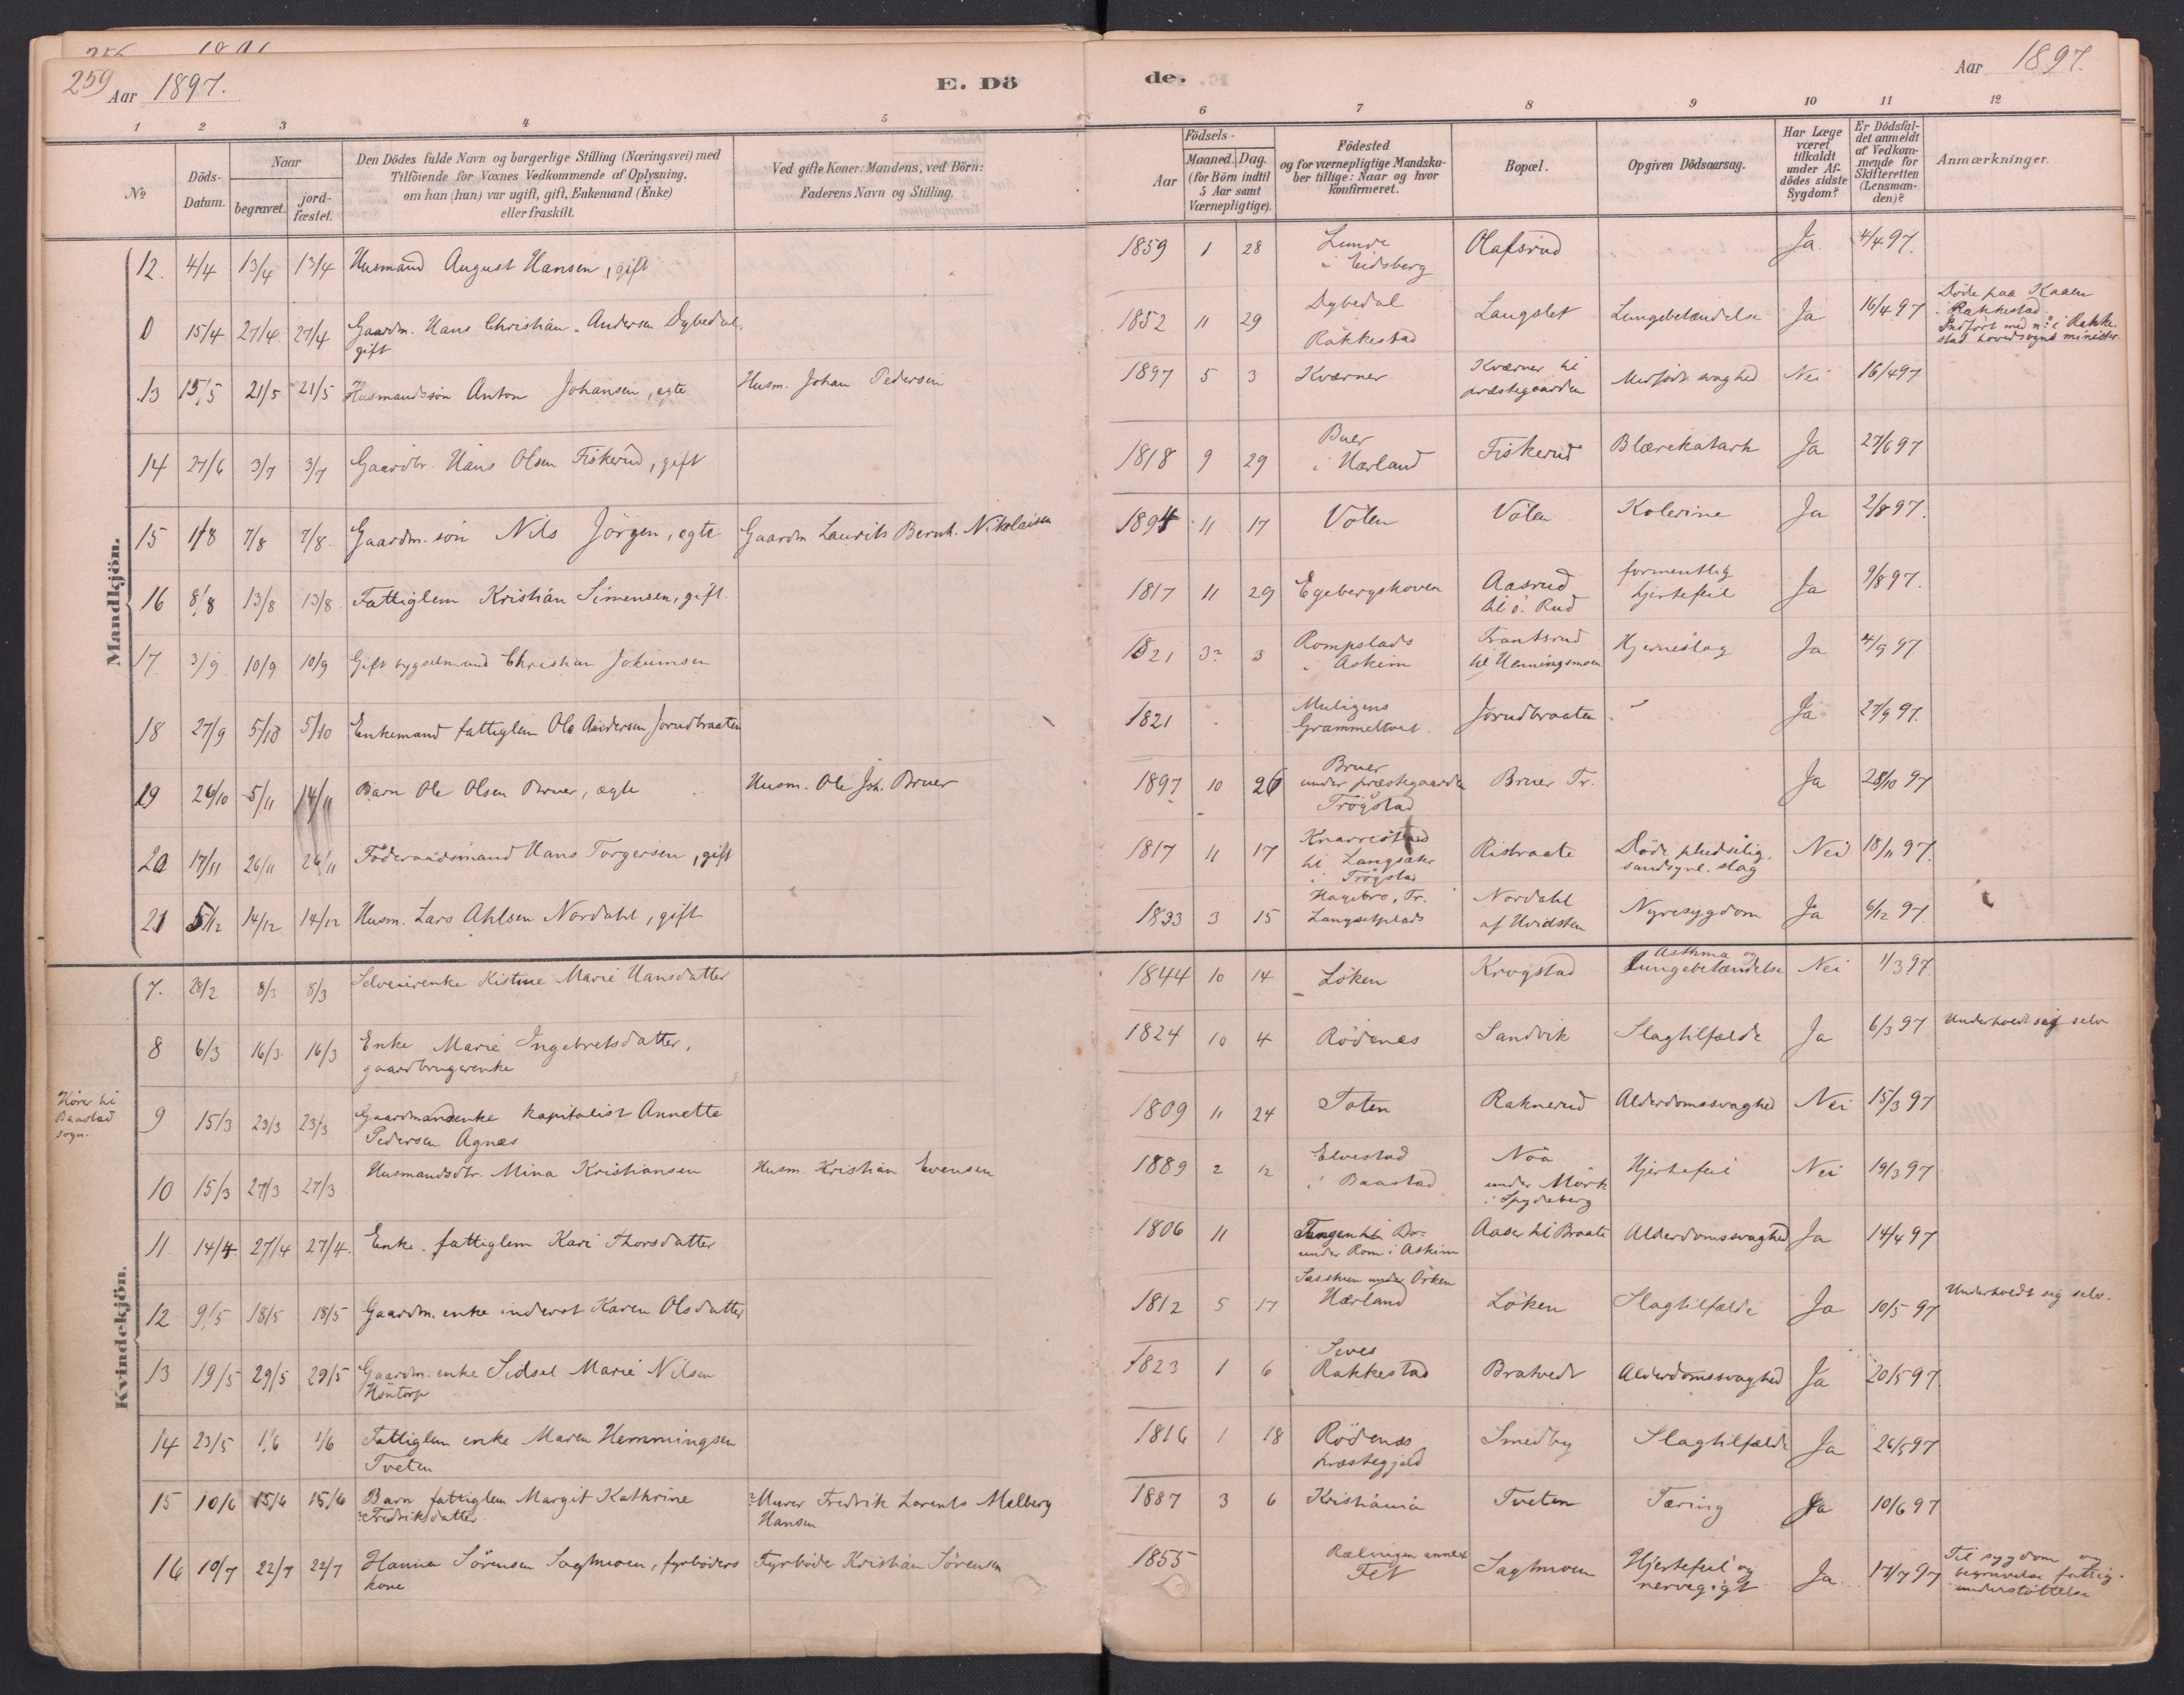 259 Aar 1897. E. Dö
1 2 3 4 5
No Döds-Datum. Naar begravet. jordfæstet. Den Dödes fulde Navn og borgerlige Stilling (Næringsvei) med Tilföiende for Voxnes Vedkommende af Oplysning, om han (hun) var ugift, gift, Enkemand (Enke) eller fraskilt. Ved gifte Koner: Mandens, ved Börn: Faderens Navn og Stilling.
Mandkjön.
12. 4/4 13/4 13/4 Husmand August Hansen, gift
0 15/4 27/4 27/4 Gaardm. Hans Christian Andersen Dybedal,
gift
13 15/5 21/5 21/5 Husmandssön Anton Johansen, egte Husm. Johan Pedersen
14 27/6 3/7 3/7 Gaardbr. Hans Olsen Fiskerud, gift
15 1/8 7/8 7/8 Gaardm. sön Nils Jörgen, egte Gaardm. Laurits Bernh. Nikolaisen
16 8/8 13/8 13/8 Fattiglem Kristian Simensen, gift
17. 3/9 10/9 10/9 Gift bygselmand Christian Jokumsen
18 27/9 5/10 5/10 Enkemand fattiglem Ole Andersen Jorudbraaten
19 26/10 5/11 14/11 Barn Ole Olsen Bruer, ægte Husm. Ole Joh. Bruer
20 17/11 26/11 26/11 Föderaadsmand Hans Torgersen, gift
21 5/12 14/12 14/12 Husm. Lars Ahlsen Nordahl, gift
Kvindekjön.
7. 28/2 8/3 8/3 Selveierenke Kistine Marie Hansdatter
8 6/3 16/3 16/3 Enke Marie Ingebretsdatter,
gaardbrugerenke
Hörer til
Baastad
sogn.
9 15/3 23/3 23/3 Gaardmandsenke kapitalist Annette
Pedersen Agnæs
10 15/3 27/3 27/3 Husmandsdtr. Mina Kristiansen Husm. Kristian Evensen
11. 14/4 27/4 27/4. Enke. fattiglem Kari Thorsdatter
12 9/5 18/5 18/5 Gaardm. enke inderst Karen Olsdatter
13 19/5 29/5 29/5 Gaardm. enke Sidsel Marie Nilsen
Höntorp
14 23/5 1/6 1/6 Fattiglem enke Maren Hemmingsen
Tveten
15 10/6 15/6 15/6 Barn fattiglem Margit Kathrine Murer Fredrik Lorents Melberg
Fredriksdatter Hansen
16 10/7 22/7 22/7 Hanna Sörensen Sagtmoen, fyrböders Fyrböder Kristian Sörensen
kone
de. Aar 1897.
6 7 8 9 10 11 12
Födsels- Aar Maaned. Dag. (for Börn indtil 5 Aar samt Værnepligtige). Födested og for værnepligtige Mandskaber tillige: Naar og hvor konfirmeret. Bopæl. Opgiven Dödsaarsag. Har Læge været tilkaldt under Afdödes sidste Sygdom? Er Dödsfaldet anmeldt af Vedkommende for Skifteretten (Lensmanden)? Anmærkninger.
1859 1 28 Lunde
i Eidsberg Olafsrud Ja 4/4 97.
1852 11 29 Dybedal
Rakkestad Langslet Lungebetændelse Ja 16/4 97 Döde paa Kaaen
i Rakkestad.
Indfört med n: i Rakke-
stad hovedsogns minister.
1897 5 3 Kværner Kværner til
præstegaarden Medfödt svaghed Nei 16/4 97
1818 9 29 Buer
i Hærland Fiskerud Blærekatarh Ja 27/6 97
1894 11 17 Völen Völen Kolerine Ja 2/8 97.
1817 11 29 Egebergskoven Aasrud
til ö. Rud formentlig
hjertefeil Ja 9/8 97.
1821 3? 3 Rompstads
i Askim Frantsrud
til Henningsmoen Hjerneslag Ja 4/9 97
1821 Muligens
Grammeltvet. Jorudbraaten " Ja 27/9 97.
1897 10 26 Bruer
under præstegaarden
Trögstad Bruer Tr. Ja 28/10 97
1817 11 17
til Langsæter
i Trögstad Ristraate Döde pludselig,
sandsynl. slag Nei 18/11 97.
1833 3 15 Hagebro, Tr.
Langsetplads Nordahl
af Hvidsten Nyresygdom Ja 6/12 97.
1844 10 14 Löken Krogstad Asthma og
Lungebetændelse Nei 1/3 97.
1824 10 4 Rödenes Sandvik Slagtilfælde Ja 6/3 97 Underholdt sig selv
1809 11 24 Toten Raknerud Alderdomssvaghed Nei 15/3 97
1889 2 12 Elvestad
i Baastad Nöa
under Mörk
i Spydeberg Hjertefeil Nei 19/3 97
1806 11 Tangen til Br.
under Rom i Askim Aaser til Braate Alderdomssvaghed Ja 14/4 97
1812 5 17 under Örken
Hærland Löken Slagtilfælde Ja 10/5 97 Underholdt sig selv.
1823 1 6
Rakkestad Bratvedt Alderdomssvaghed Ja 20/5 97.
1816 1 18 Rödenæs
præstegjeld Smedby Slagtilfælde Ja 26/5 97
1887 3 6 Kristiania Tveten Tæring Ja 10/6 97
1855 Rælingen annex
Fet Sagtmoen Hjertefeil og
nervegigt Ja 17/7 97 Til sygdom og
begravelse fattig-
understöttelse